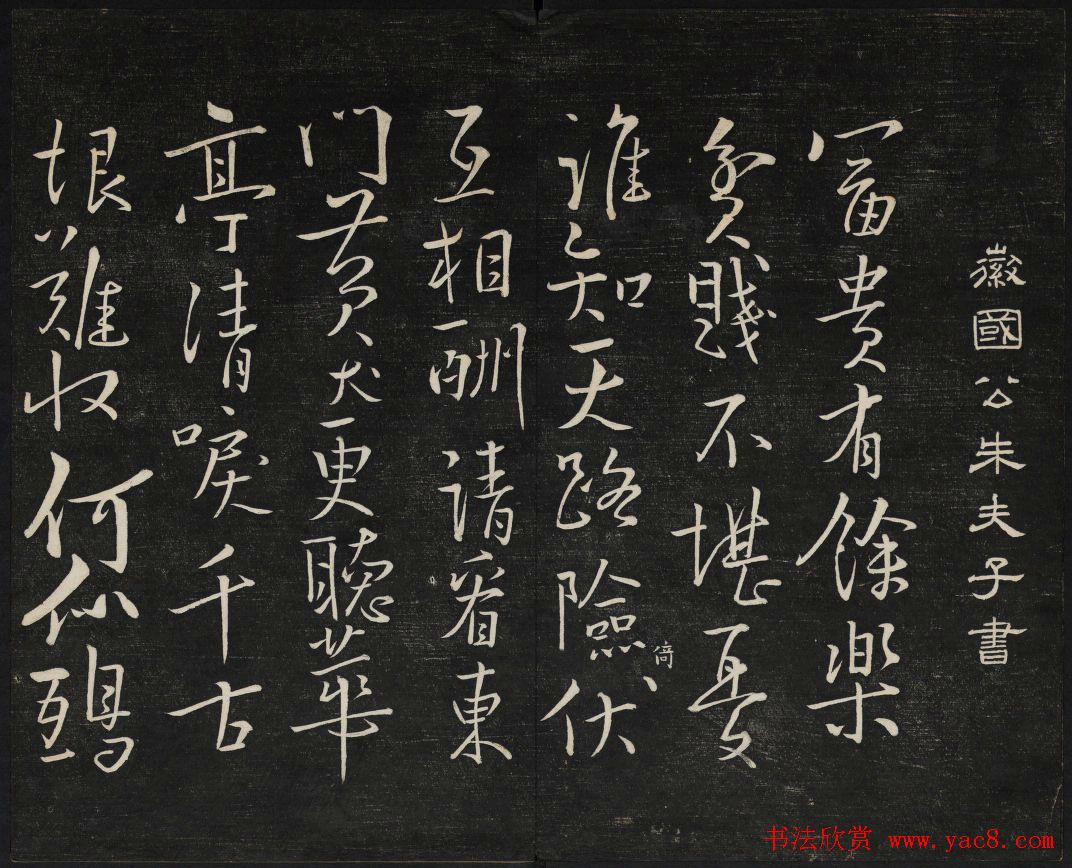 徽國公朱夫子書
富貴有餘樂
貧賤不堪憂
誰知天路險倚伏
互相酬請看東
門黃犬更聽華
亭清唳千古
恨難收何似鴟
书法欣赏 www.yac8.com